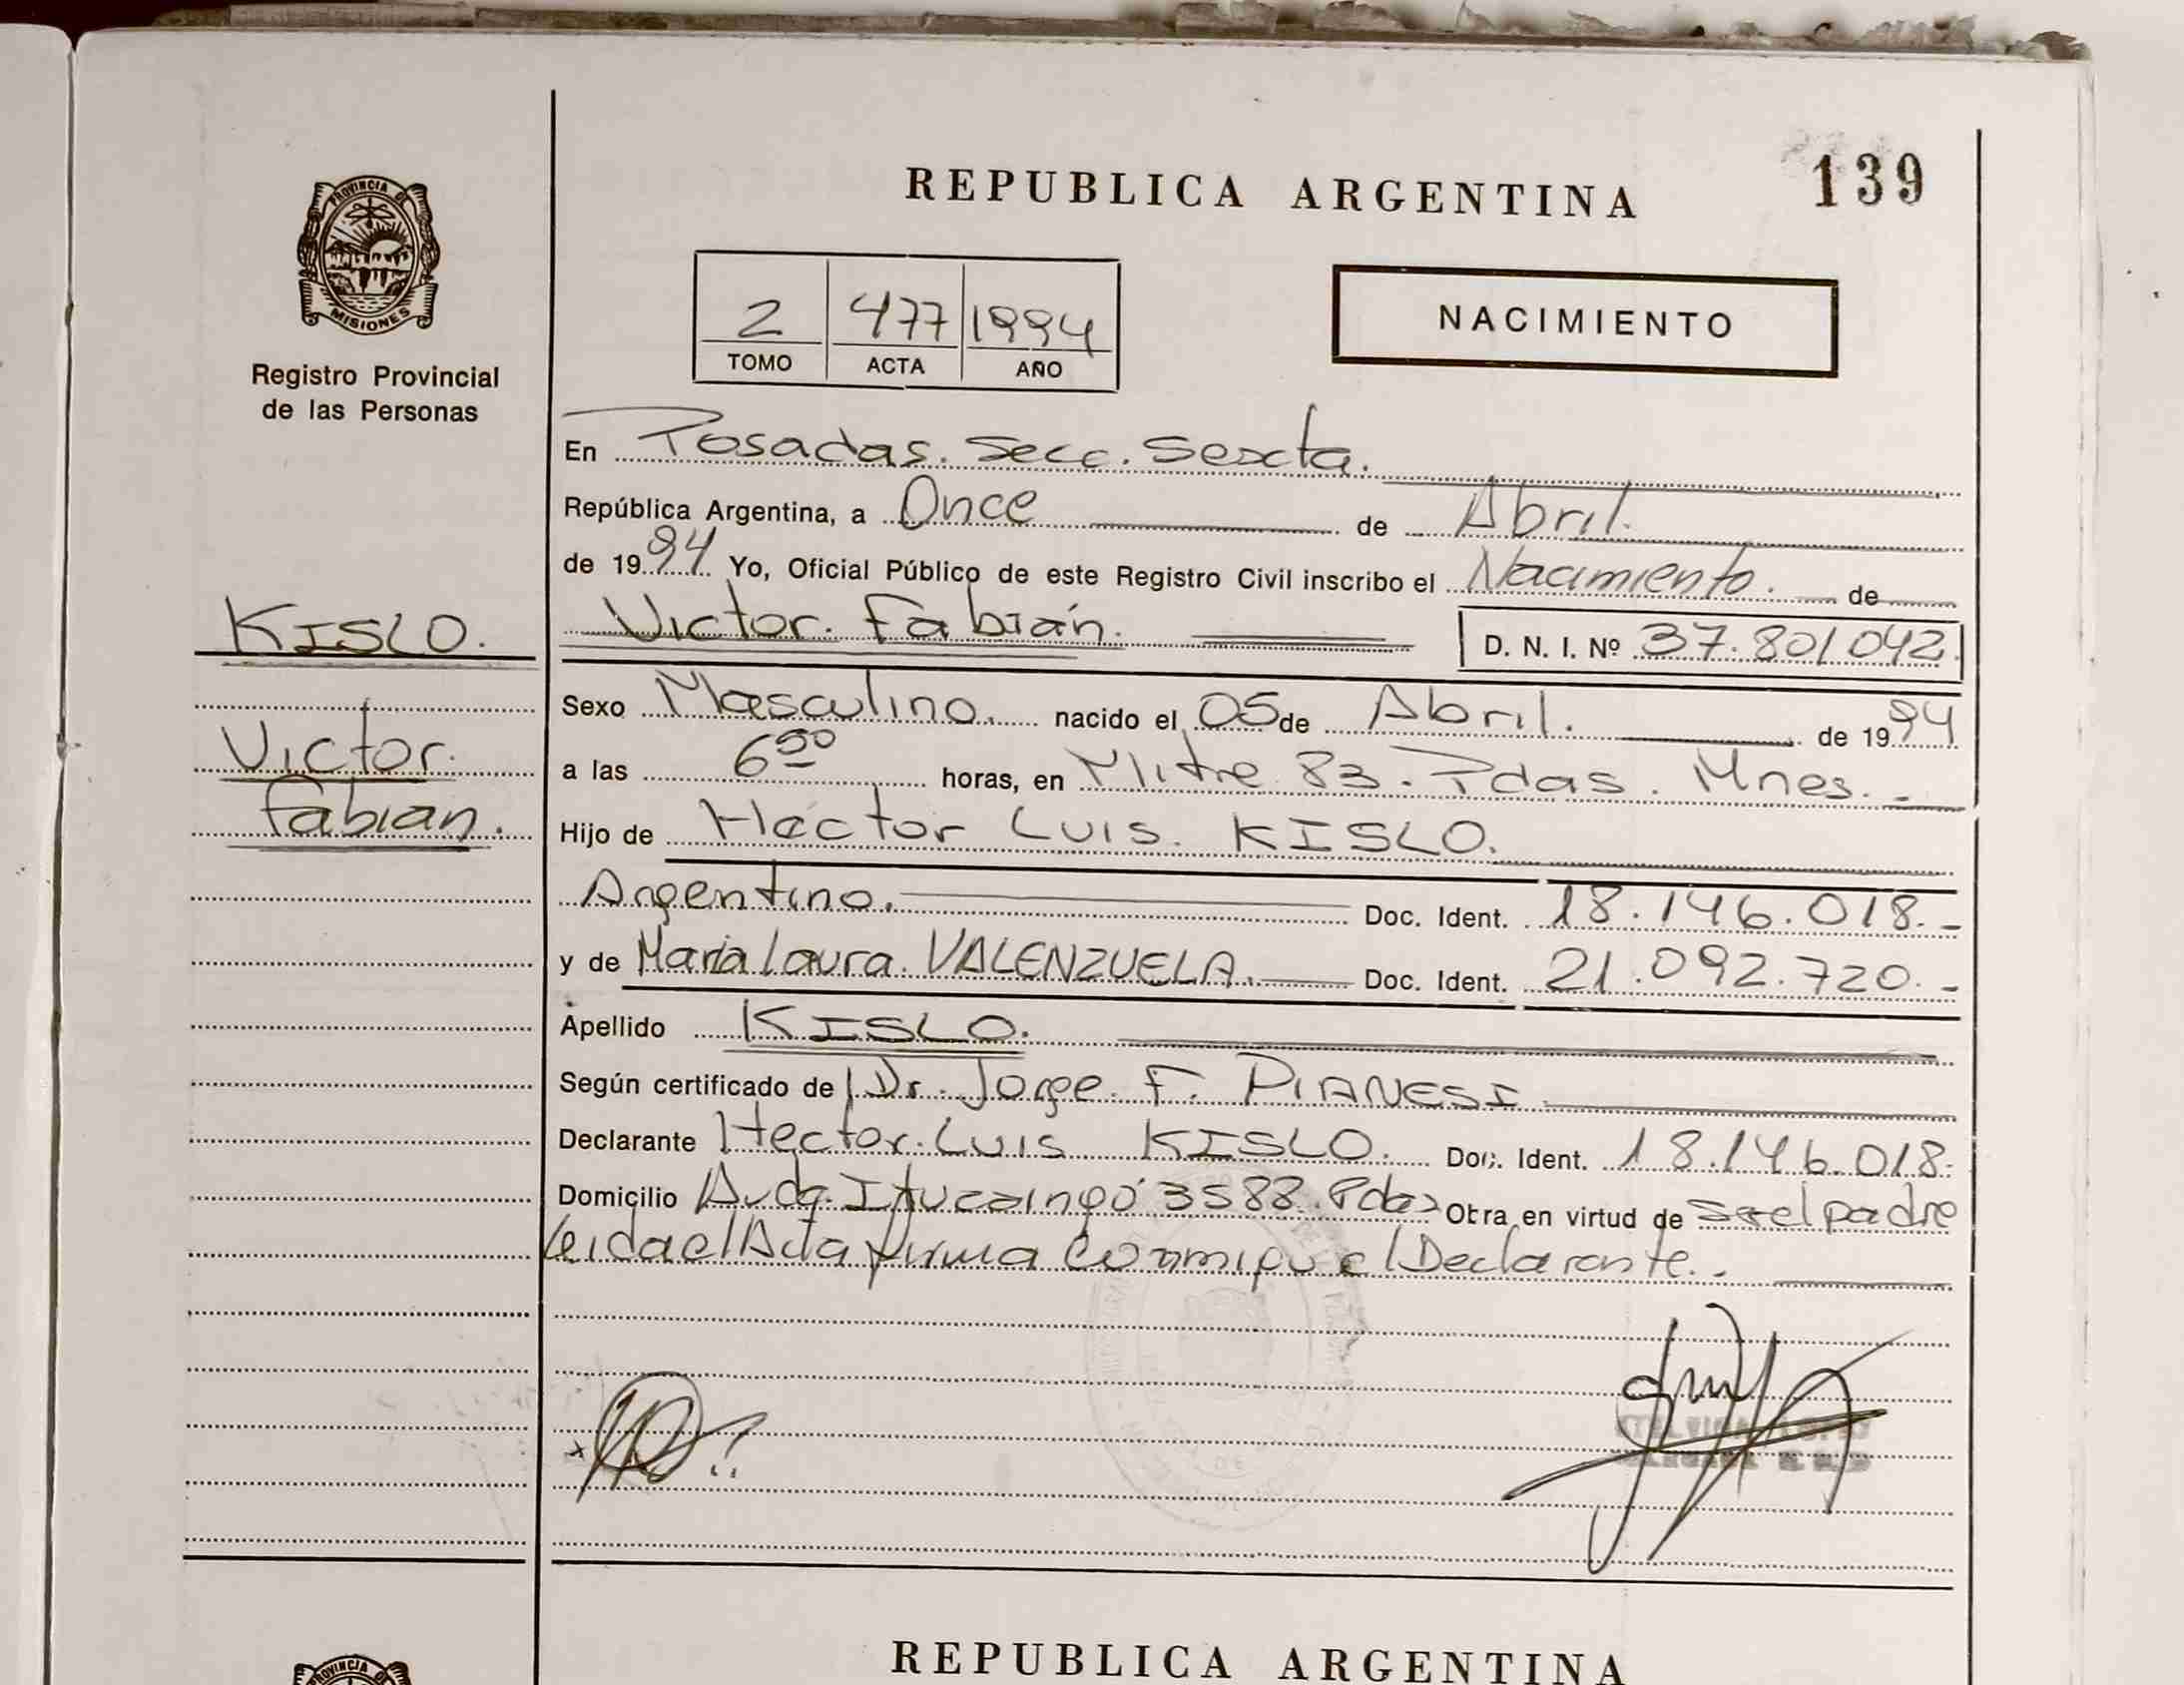 139
REPUBLICA ARGENTINA
PROVINCIA DE
MISIONES
Registro Provincial
de las Personas
2 477 1994
TOMO ACTA AÑO
NACIMIENTO
En Posadas. Secc. Sexta.
República Argentina, a Once de Abril.
de 1994 Yo, Oficial Público de este Registro Civil inscribo el Nacimiento. de
KISLO.
Victor. Fabián. D. N. I. Nº 37.801042.
Sexo Masculino. nacido el 05 de Abril. de 1994
Victor.
a las horas, en Mitre 83. Pdas. Mnes.-
Fabian.
Hijo de Héctor Luis. KISLO.
Argentino. Doc. Ident. 18.146.018.-
y de Maria Laura. VALENZUELA. Doc. Ident. 21.092.720.-
Apellido KISLO.
Según certificado de Dr. Jorge F. PIANESI
Declarante Hector Luis KISLO. Doc. Ident. 18.146.018.
Domicilio Avda. Ituzaingó 3588. Pdas Obra en virtud de ser el padre
Leida el Acta firma Conmigo el Declarante.
REPUBLICA ARGENTINA
PROVINCIA DE